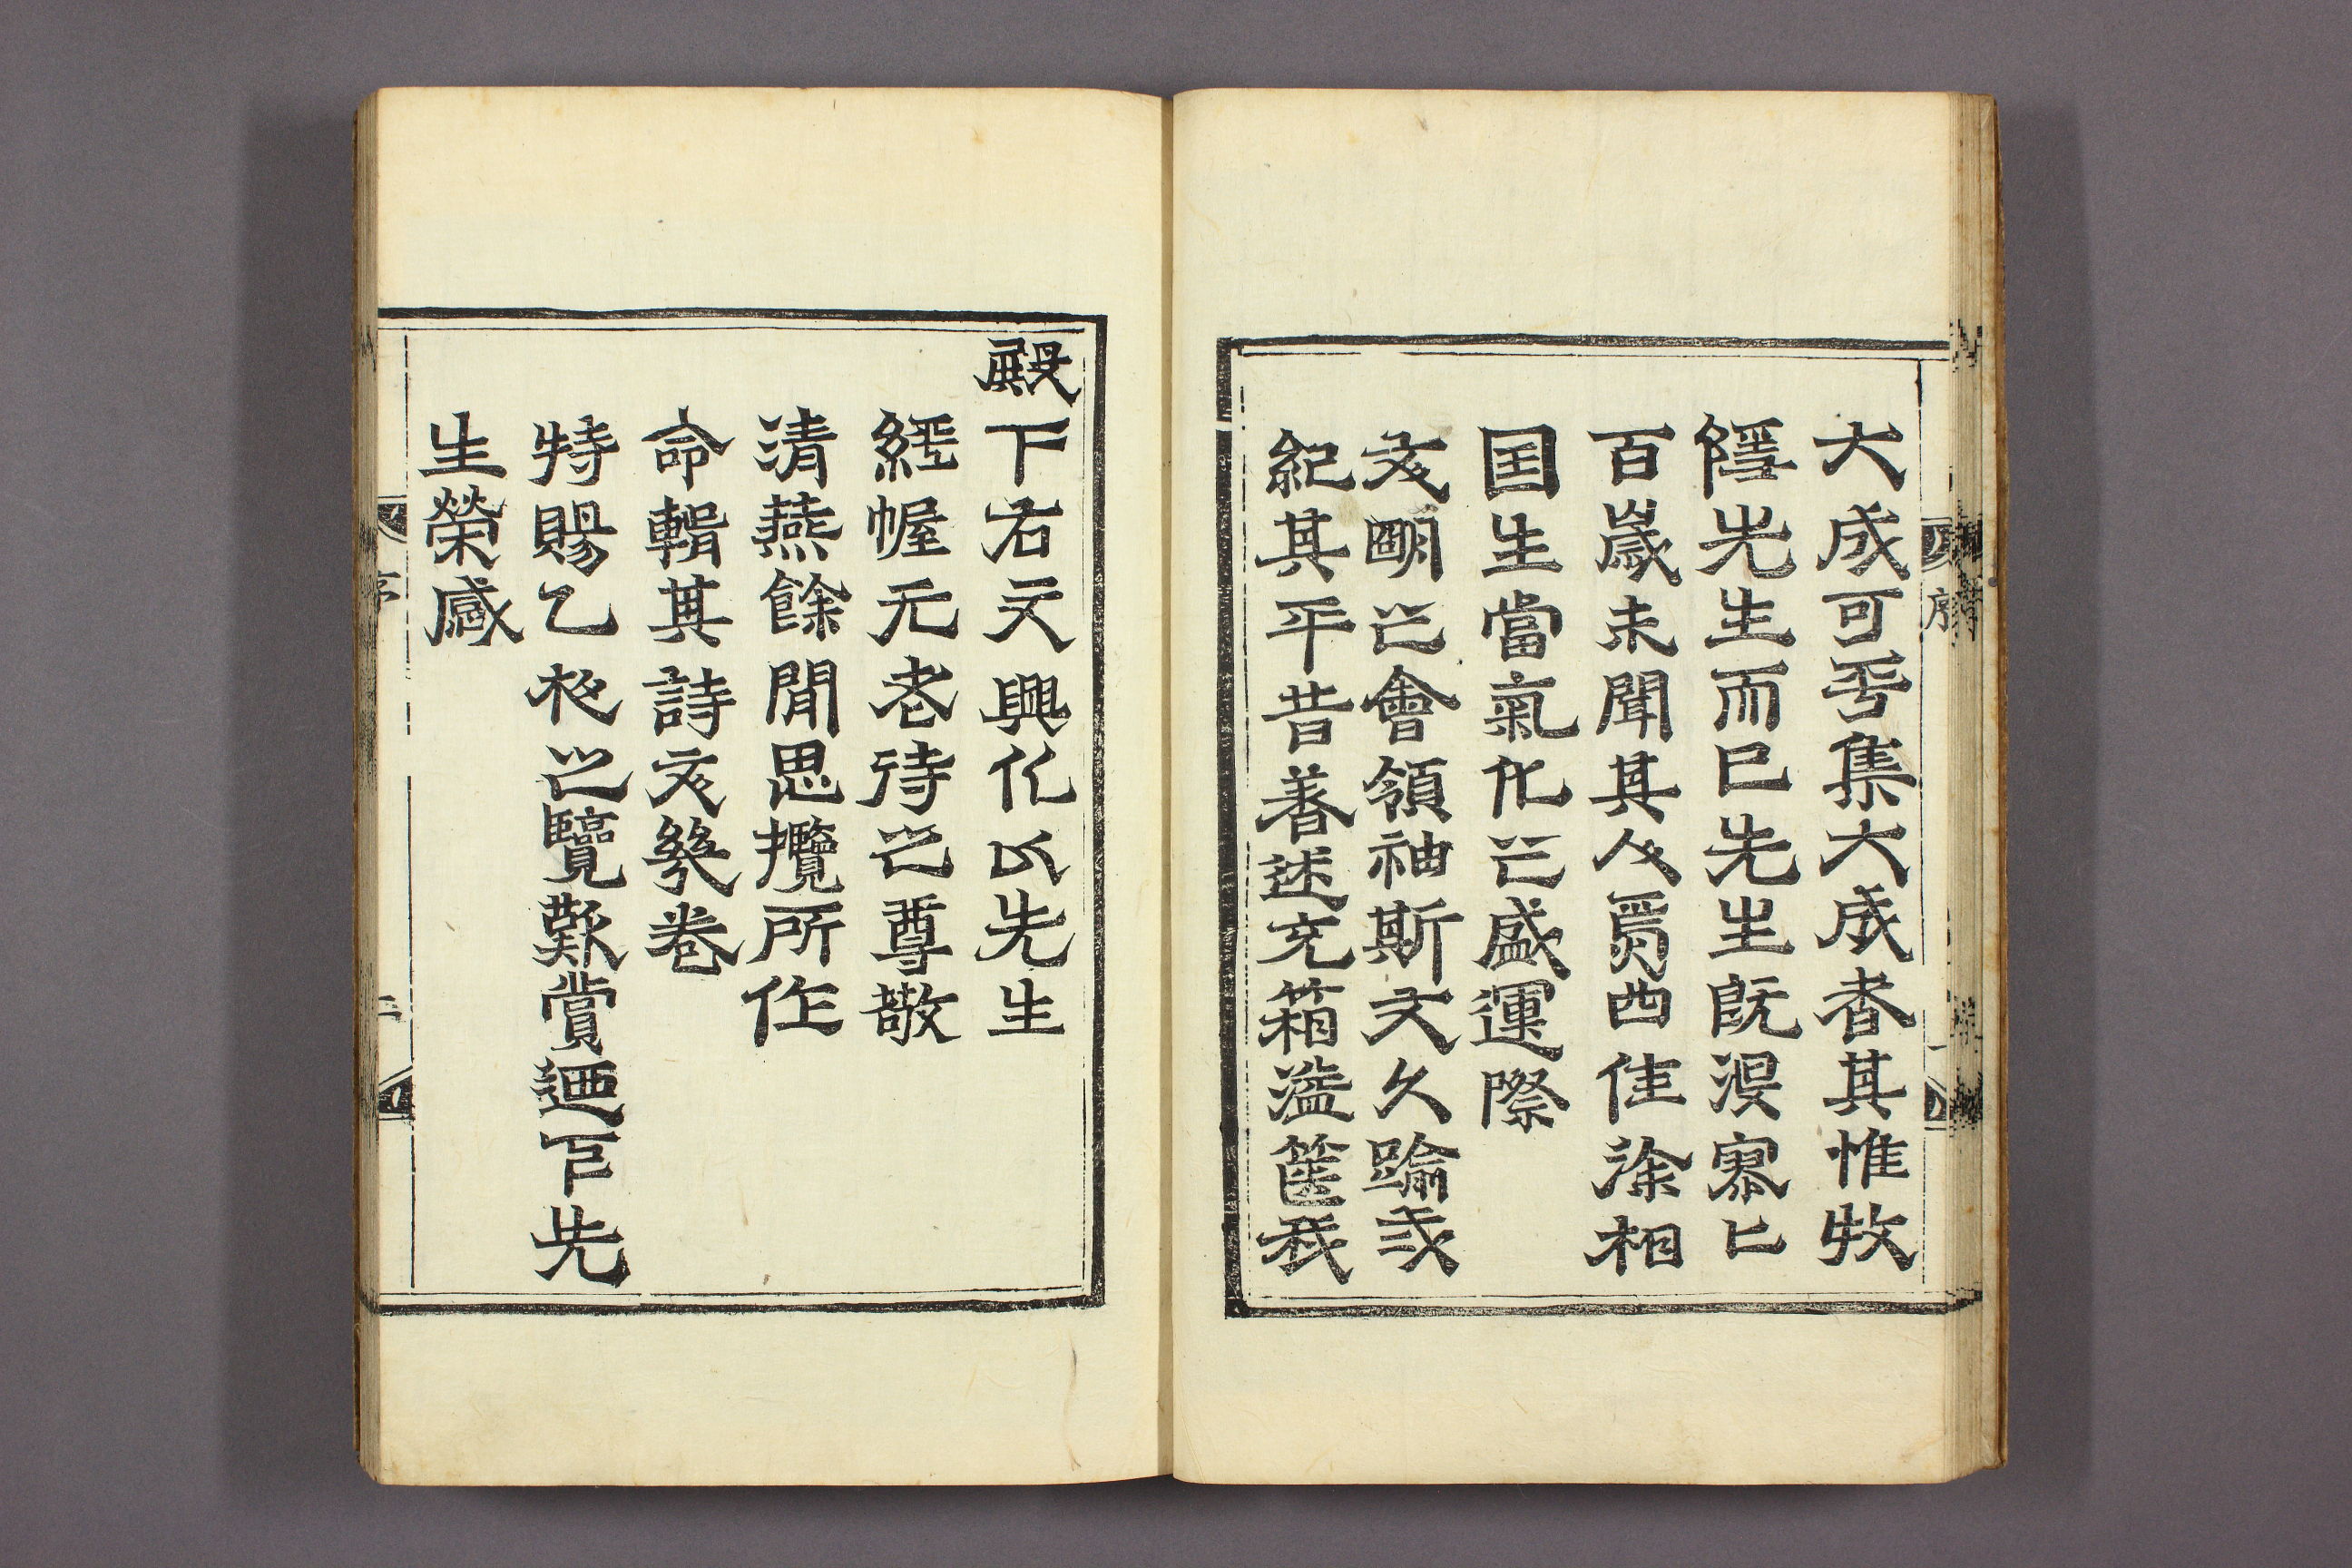 大成可乎集大成者其惟牧
隱先生而已先生旣沒寥〻
百歲未聞其人焉四佳徐相
国生當氣化之盛運際
文明之會領袖斯文久踰弍
紀其平昔著述充箱溢篋我
殿下右文興化以先生
經幄元老待之尊敬
淸燕餘閒思攬所作
命輯其詩文幾卷
特賜乙夜之覽歎賞迺下先
生榮感
序
一
序
二